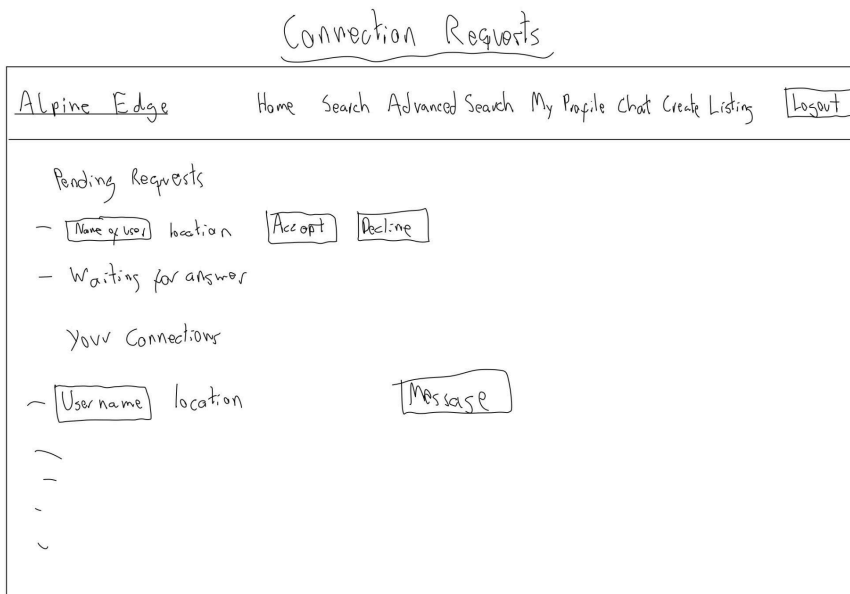 Connection Requests
Alpine Edge Home Search Advanced Search My Profile Chat Create Listing Logout
Pending Requests
- Name of user location Accept Decline
- Waiting for answer
Your Connections
- Username location Message
-
-
-
-